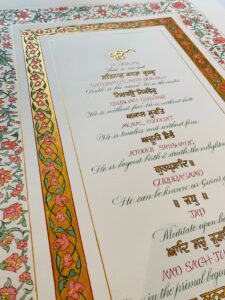 ੴ
There is one god
ਸਤਿਨਾਮੁ ਕਰਤਾ ਪੁਰਖੁ
Truth is his name. He is the creator
ਨਿਰਭਉ ਨਿਰਵੈਰੁ
NIRBHAU NIRVAIR
He is without fear. He is without hate
ਅਕਾਲ ਮੂਰਤਿ
AKAAL MOORAT
He is timeless and without form
ਅਜੂਨੀ ਸੈਭੰ
He is beyond birth & death, the
ਗੁਰਪ੍ਰਸਾਦਿ
GURPRASAAD
He can be known as Guru's
॥ ਜਪੁ ॥
JAP
Meditate upon
ਆਦਿ ਸਚੁ
AAD SACH
in the primal